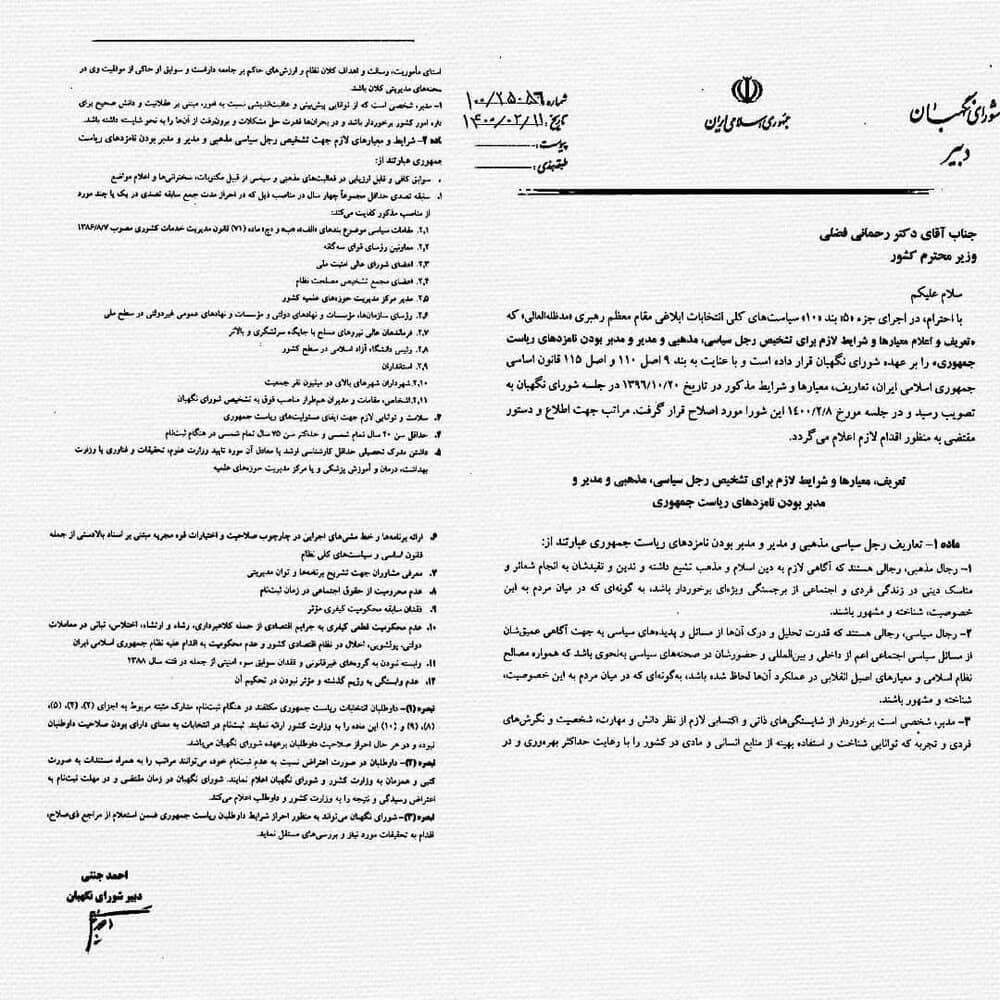 شورای نگهبان
دبیر
جمهوری اسلامی ایران
شماره: ۱۰۰/۲۵۰۸۶
تاریخ: ۱۴۰۰/۰۲/۱۱
پیوست:
طبقه‌بندی:
جناب آقای دکتر رحمانی فضلی
وزیر محترم کشور
سلام علیکم
با احترام، در اجرای جزء «۵» بند «۱۰» سیاست‌های کلی انتخابات ابلاغی مقام معظم رهبری «مدظله‌العالی» که
«تعریف و اعلام معیارها و شرایط لازم برای تشخیص رجل سیاسی، مذهبی و مدیر و مدبر بودن نامزدهای ریاست
جمهوری» را بر عهده شورای نگهبان قرار داده است و با عنایت به بند ۹ اصل ۱۱۰ و اصل ۱۱۵ قانون اساسی
جمهوری اسلامی ایران، تعاریف، معیارها و شرایط مذکور در تاریخ ۱۳۹۶/۱۰/۲۰ در جلسه شورای نگهبان به
تصویب رسید و در جلسه مورخ ۱۴۰۰/۲/۸ این شورا مورد اصلاح قرار گرفت. مراتب جهت اطلاع و دستور
مقتضی به منظور اقدام لازم اعلام می‌گردد.
تعریف، معیارها و شرایط لازم برای تشخیص رجل سیاسی، مذهبی و مدیر و
مدبر بودن نامزدهای ریاست جمهوری
ماده ۱- تعاریف رجل سیاسی مذهبی و مدیر و مدبر بودن نامزدهای ریاست جمهوری عبارتند از:
۱- رجال مذهبی، رجالی هستند که آگاهی لازم به دین اسلام و مذهب تشیع داشته و تدین و تقیدشان به انجام شعائر و
مناسک دینی در زندگی فردی و اجتماعی از برجستگی ویژه‌ای برخوردار باشد، به گونه‌ای که در میان مردم به این
خصوصیت، شناخته و مشهور باشند.
۲- رجال سیاسی، رجالی هستند که قدرت تحلیل و درک آن‌ها از مسائل و پدیده‌های سیاسی به جهت آگاهی عمیق‌شان
از مسائل سیاسی اجتماعی اعم از داخلی و بین‌المللی و حضورشان در صحنه‌های سیاسی به‌نحوی باشد که همواره مصالح
نظام اسلامی و معیارهای اصیل انقلابی در عملکرد آن‌ها لحاظ شده باشد، به‌گونه‌ای که در میان مردم به این خصوصیت،
شناخته و مشهور باشند.
۳- مدیر، شخصی است برخوردار از شایستگی‌های ذاتی و اکتسابی لازم از نظر دانش و مهارت، شخصیت و نگرش‌های
فردی و تجربه که توانایی شناخت و استفاده بهینه از منابع انسانی و مادی در کشور را با رعایت حداکثر بهره‌وری و در
استای مأموریت، رسالت و اهداف کلان نظام و ارزش‌های حاکم بر جامعه داراست و سوابق او حاکی از موفقیت وی در
صحنه‌های مدیریتی کلان باشد.
۱- مدبر، شخصی است که از توانایی پیش‌بینی و عاقبت‌اندیشی نسبت به امور، مبتنی بر عقلانیت و دانش صحیح برای
داره امور کشور برخوردار باشد و در بحران‌ها قدرت حل مشکلات و برون‌رفت از آن‌ها را به نحو شایسته داشته باشد.
ماده ۲- شرایط و معیارهای لازم جهت تشخیص رجل سیاسی مذهبی و مدیر و مدبر بودن نامزدهای ریاست
جمهوری عبارتند از:
سوابق کافی و قابل ارزیابی در فعالیت‌های مذهبی و سیاسی از قبیل مکتوبات، سخنرانی‌ها و اعلام مواضع
سابقه تصدی حداقل مجموعاً چهار سال در مناصب ذیل که در احراز مدت جمع سابقه تصدی در یک یا چند مورد
از مناصب مذکور کفایت می‌کند:
۲.۱. مقامات سیاسی موضوع بندهای «الف»، «ب» و «ج» ماده (۷۱) قانون مدیریت خدمات کشوری مصوب ۱۳۸۶/۸/۷
۲.۲. معاونین رؤسای قوای سه‌گانه
۲.۳. اعضای شورای عالی امنیت ملی
۲.۴. اعضای مجمع تشخیص مصلحت نظام
۲.۵. مدیر مرکز مدیریت حوزه‌های علمیه کشور
۲.۶. رؤسای سازمان‌ها، مؤسسات و نهادهای دولتی و مؤسسات و نهادهای عمومی غیردولتی در سطح ملی
۲.۷. فرماندهان عالی نیروهای مسلح با جایگاه سرلشگری و بالاتر
۲.۸. رئیس دانشگاه آزاد اسلامی در سطح کشور
۲.۹. استانداران
۲.۱۰. شهرداران شهرهای بالای دو میلیون نفر جمعیت
۲.۱۱. اشخاص، مقامات و مدیران هم‌طراز مناصب فوق به تشخیص شورای نگهبان
۳. سلامت و توانایی لازم جهت ایفای مسئولیت‌های ریاست جمهوری
۴. حداقل سن ۴۰ سال تمام شمسی و حداکثر سن ۷۵ سال تمام شمسی در هنگام ثبت‌نام
۵. داشتن مدرک تحصیلی حداقل کارشناسی ارشد یا معادل آن مورد تایید وزارت علوم، تحقیقات و فناوری یا وزارت
بهداشت، درمان و آموزش پزشکی و یا مرکز مدیریت حوزه‌های علمیه
۶. ارائه برنامه‌ها و خط مشی‌های اجرایی در چارچوب صلاحیت و اختیارات قوه مجریه مبتنی بر اسناد بالادستی از جمله
قانون اساسی و سیاست‌های کلی نظام
۷. معرفی مشاوران جهت تشریح برنامه‌ها و توان مدیریتی
۸. عدم محرومیت از حقوق اجتماعی در زمان ثبت‌نام
۹. فقدان سابقه محکومیت کیفری مؤثر
۱۰. عدم محکومیت قطعی کیفری به جرایم اقتصادی از جمله کلاهبرداری، رشاء و ارتشاء، اختلاس، تبانی در معاملات
دولتی، پولشویی، اخلال در نظام اقتصادی کشور و عدم محکومیت به اقدام علیه نظام جمهوری اسلامی ایران
۱۱. وابسته نبودن به گروه‌های غیرقانونی و فقدان سوابق سوء امنیتی از جمله در فتنه سال ۱۳۸۸
۱۲. عدم وابستگی به رژیم گذشته و مؤثر نبودن در تحکیم آن
تبصره (۱)- داوطلبان انتخابات ریاست جمهوری مکلفند در هنگام ثبت‌نام، مدارک مثبته مربوط به اجزای (۲)، (۴)، (۵)،
(۸)، (۹) و (۱۰) این ماده را به وزارت کشور ارائه نمایند. ثبت‌نام در انتخابات به معنای دارای بودن صلاحیت داوطلبان
نبوده و در هر حال احراز صلاحیت داوطلبان برعهده شورای نگهبان می‌باشد.
تبصره (۲)- داوطلبان در صورت اعتراض نسبت به عدم ثبت‌نام خود، می‌توانند مراتب را به همراه مستندات به صورت
کتبی و همزمان به وزارت کشور و شورای نگهبان اعلام نمایند. شورای نگهبان در زمان مقتضی و در مهلت ثبت‌نام به
اعتراض رسیدگی و نتیجه را به وزارت کشور و داوطلب اعلام می‌کند.
تبصره (۳)- شورای نگهبان می‌تواند به منظور احراز شرایط داوطلبان ریاست جمهوری ضمن استعلام از مراجع ذی‌صلاح،
اقدام به تحقیقات مورد نیاز و بررسی‌های مستقل نماید.
احمد جنتی
دبیر شورای نگهبان